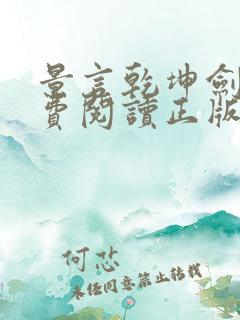 景言乾坤劍
費閱讀正版
何芯
未经同意禁止转载